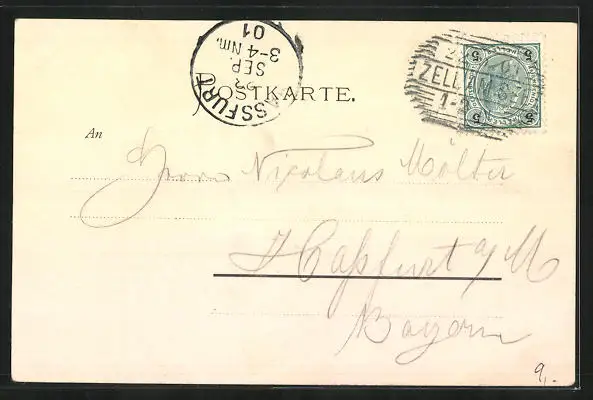 HASSFURT
23
SEP.
3-4 Nm.
01
ZELL
5
5
5
5
POSTKARTE.
An
Herrn Nicolaus Mölter
Haßfurt a/M
Bayern
9,